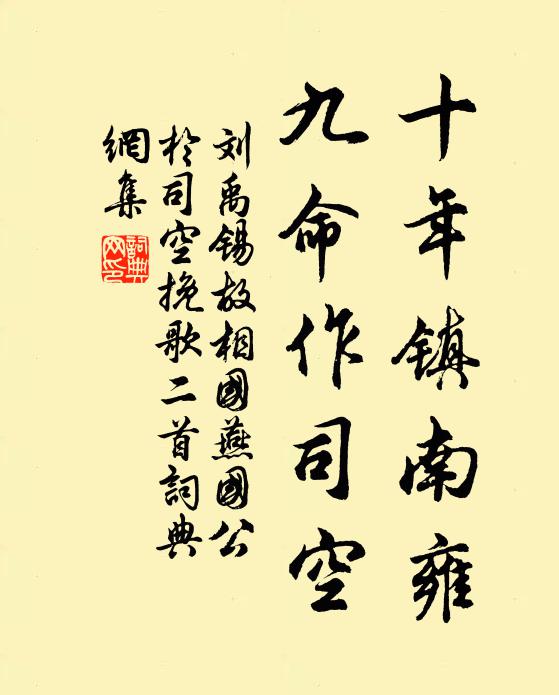 十年镇南雍
九命作司空
刘禹锡故相國燕國公
於司空挽歌二首詞典
網集
詞典網印